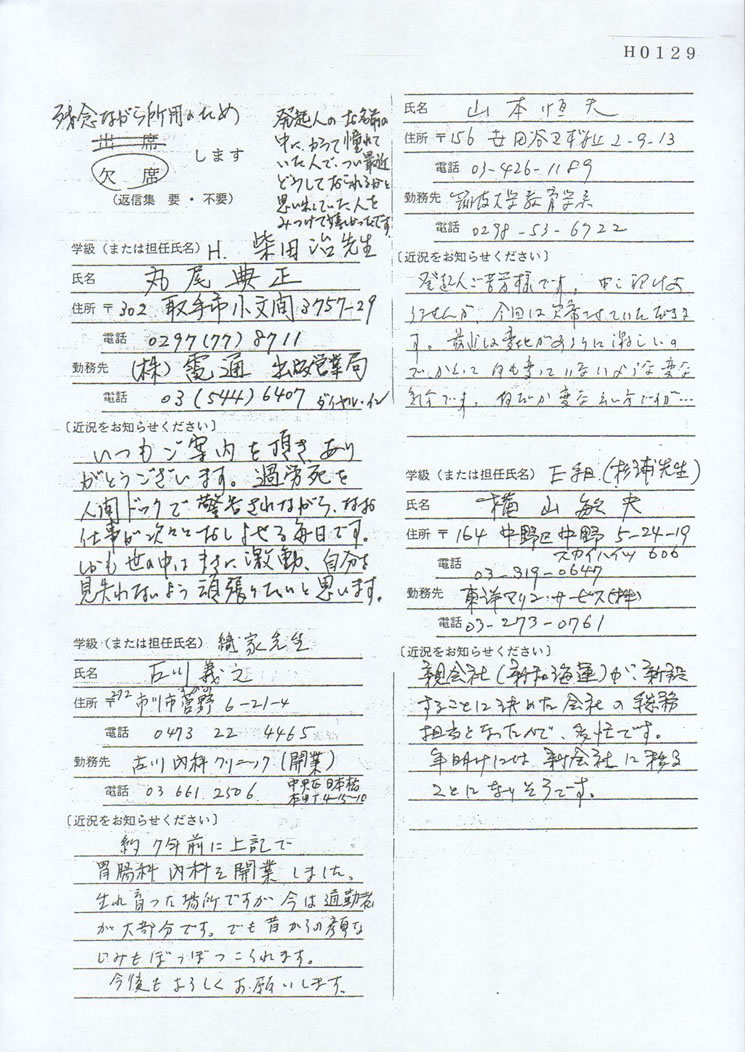 H0129
残念ながら所用のため
出席
欠席
します
(返信集 要・不要)
発起人のお名前の
中に、かつて憧れて
いた人で、つい最近
どうしておられるかと
思い出していた人を
みつけて嬉しかったです
学級(または担任氏名) H. 柴田治先生
氏名 丸尾典正
住所 〒302 取手市小文間3757-29
電話 0297(77)8711
勤務先 (株)電通 出版営業局
電話 03(544)6407 ダイヤル・イン
〔近況をお知らせください〕
いつもご案内を頂き、あり
がとうございます。過労死を
人間ドックで警告されながら、なお
仕事が次々とおしよせる毎日です。
しかも世の中はまさに激動、自分を
見失わないよう頑張りたいと思います。
学級(または担任氏名) 先生
氏名 古川義之
住所 〒272 市川市菅野6-21-4
電話 0473 22 4465
勤務先 古川内科クリニック(開業)
電話 03 661 2506 中央区日本橋
4-15-10
〔近況をお知らせください〕
約7年前に上記で
胃腸科内科を開業しました。
生れ育った場所ですが今は通勤者
が大部分です。でも昔からの顔な
じみもぼつぼつこられます。
今後もよろしくお願いします。
氏名 山本恒夫
住所 〒156 世田谷区桜丘2-9-13
電話 03-426-1189
勤務先 筑波大学教育学系
電話 0298-53-6722
〔近況をお知らせください〕
発起人ご苦労様です。申し訳けあ
りませんが、今回は欠席させていただきま
す。最近は変化があまりに激しいの
で、かえって何も変っていないような変な
気分です。何だか変な云い方ですが…
学級(または担任氏名) E組(杉浦先生)
氏名 横山敏夫
住所 〒164 中野区中野5-24-19
スカイハイツ606
電話 03-319-0647
勤務先 東洋マリン・サービス(株)
電話 03-273-0761
〔近況をお知らせください〕
親会社(新和海運)が、新設
することに決めた会社の総務
担当となったので、多忙です。
年明けには、新会社に移る
ことになりそうです。